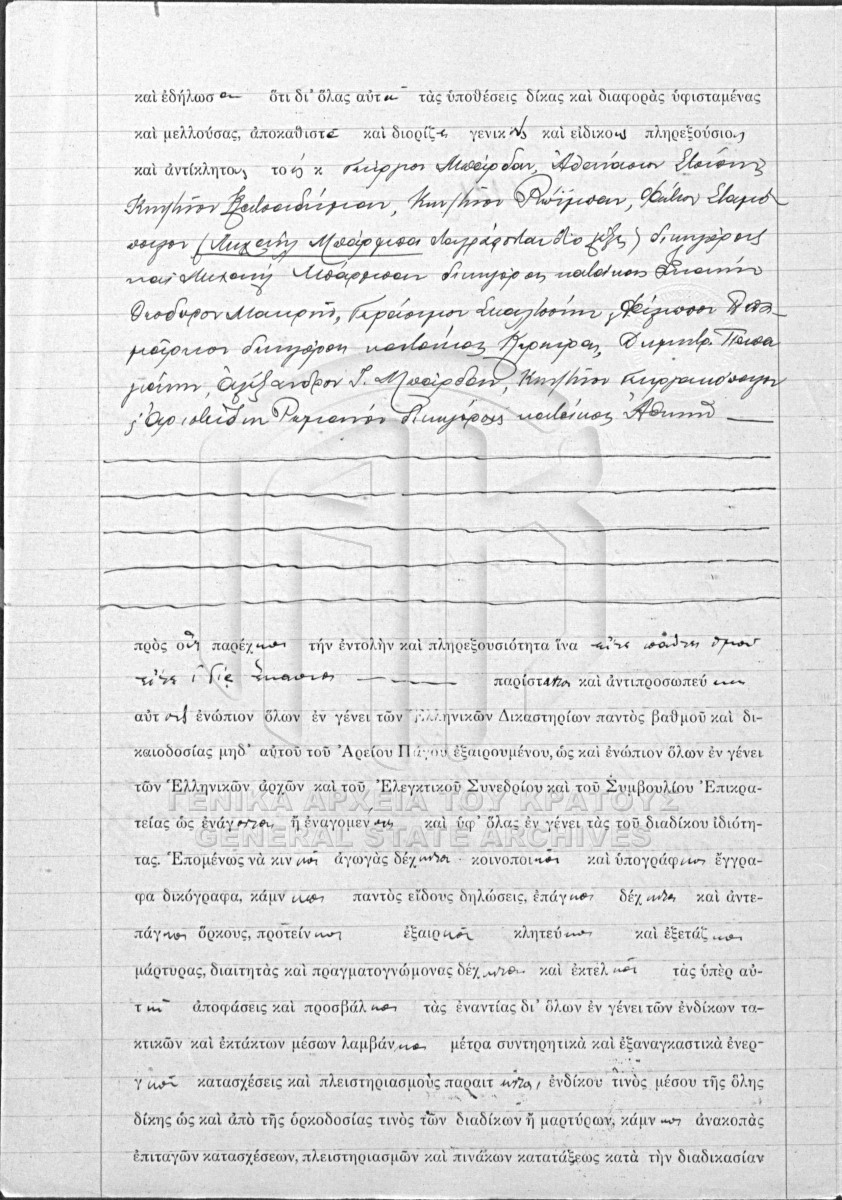 καὶ ἐδήλωσε ὅτι δι’ ὅλας αὐτοῦ τὰς ὑποθέσεις δίκας καὶ διαφορὰς ὑφισταμένας
καὶ μελλούσας, ἀποκαθιστᾷ καὶ διορίζει γενικοὺς καὶ εἰδικοὺς πληρεξουσίους
καὶ ἀντικλήτους τοὺς κ. Γεώργιον Μπάρδαν, Ἀθανάσιον
Κων/τῖνον Κων/τῖνον Φώτιον
(Μιχαὴλ διαγράφονται δύο λέξεις) δικηγόρους
καὶ Μιχαὴλ δικηγόρον κάτοικον
Θεόδωρον Μακρῆν, Γεράσιμον Φίλιππον
δικηγόρους κατοίκους Κερκύρας, Δημήτρ. Παπα
γιάννην, Ἀλέξανδρον Γ. Μπάρδαν, Κων/τῖνον
δικηγόρους κατοίκους Ἀθηνῶν
πρὸς οὓς παρέχει τὴν ἐντολὴν καὶ πληρεξουσιότητα ἵνα εἴτε πάντες ὁμοῦ
εἴτε ἰδίᾳ ἕκαστος παρίστανται καὶ ἀντιπροσωπεύωσιν
αὐτοὺς ἐνώπιον ὅλων ἐν γένει τῶν Ἑλληνικῶν Δικαστηρίων παντὸς βαθμοῦ καὶ δι-
καιοδοσίας μηδ’ αὐτοῦ τοῦ Ἀρείου Πάγου ἐξαιρουμένου, ὡς καὶ ἐνώπιον ὅλων ἐν γένει
τῶν Ἑλληνικῶν ἀρχῶν καὶ τοῦ Ἐλεγκτικοῦ Συνεδρίου καὶ τοῦ Συμβουλίου Ἐπικρα-
ΓΕΝΙΚΑ ΑΡΧΕΙΑ ΤΟΥ ΚΡΑΤΟΥΣ
τείας ὡς ἐνάγοντος ἢ ἐναγομένους καὶ ὑφ’ ὅλας ἐν γένει τὰς τοῦ διαδίκου ἰδιότη-
GENERAL STATE ARCHIVES
τας. Ἑπομένως νὰ κινῶσι ἀγωγὰς δέχωνται κοινοποιῶσι καὶ ὑπογράφωσι ἔγγρα-
φα δικόγραφα, κάμνωσι παντὸς εἴδους δηλώσεις, ἐπάγωσι δέχωνται καὶ ἀντε-
πάγωσι ὅρκους, προτείνωσι ἐξαιρῶσι κλητεύωσι καὶ ἐξετάζωσι
μάρτυρας, διαιτητὰς καὶ πραγματογνώμονας δέχωνται καὶ ἐκτελῶσι τὰς ὑπὲρ αὐ-
τῶν ἀποφάσεις καὶ προσβάλωσι τὰς ἐναντίας δι’ ὅλων ἐν γένει τῶν ἐνδίκων τα-
κτικῶν καὶ ἐκτάκτων μέσων λαμβάνωσι μέτρα συντηρητικὰ καὶ ἐξαναγκαστικὰ ἐνερ-
γῶσι κατασχέσεις καὶ πλειστηριασμοὺς παραιτῶνται, ἐνδίκου τινὸς μέσου τῆς ὅλης
δίκης ὡς καὶ ἀπὸ τῆς ὁρκοδοσίας τινὸς τῶν διαδίκων ἢ μαρτύρων, κάμνωσι ἀνακοπὰς
ἐπιταγῶν κατασχέσεων, πλειστηριασμῶν καὶ πινάκων κατατάξεως κατὰ τὴν διαδικασίαν